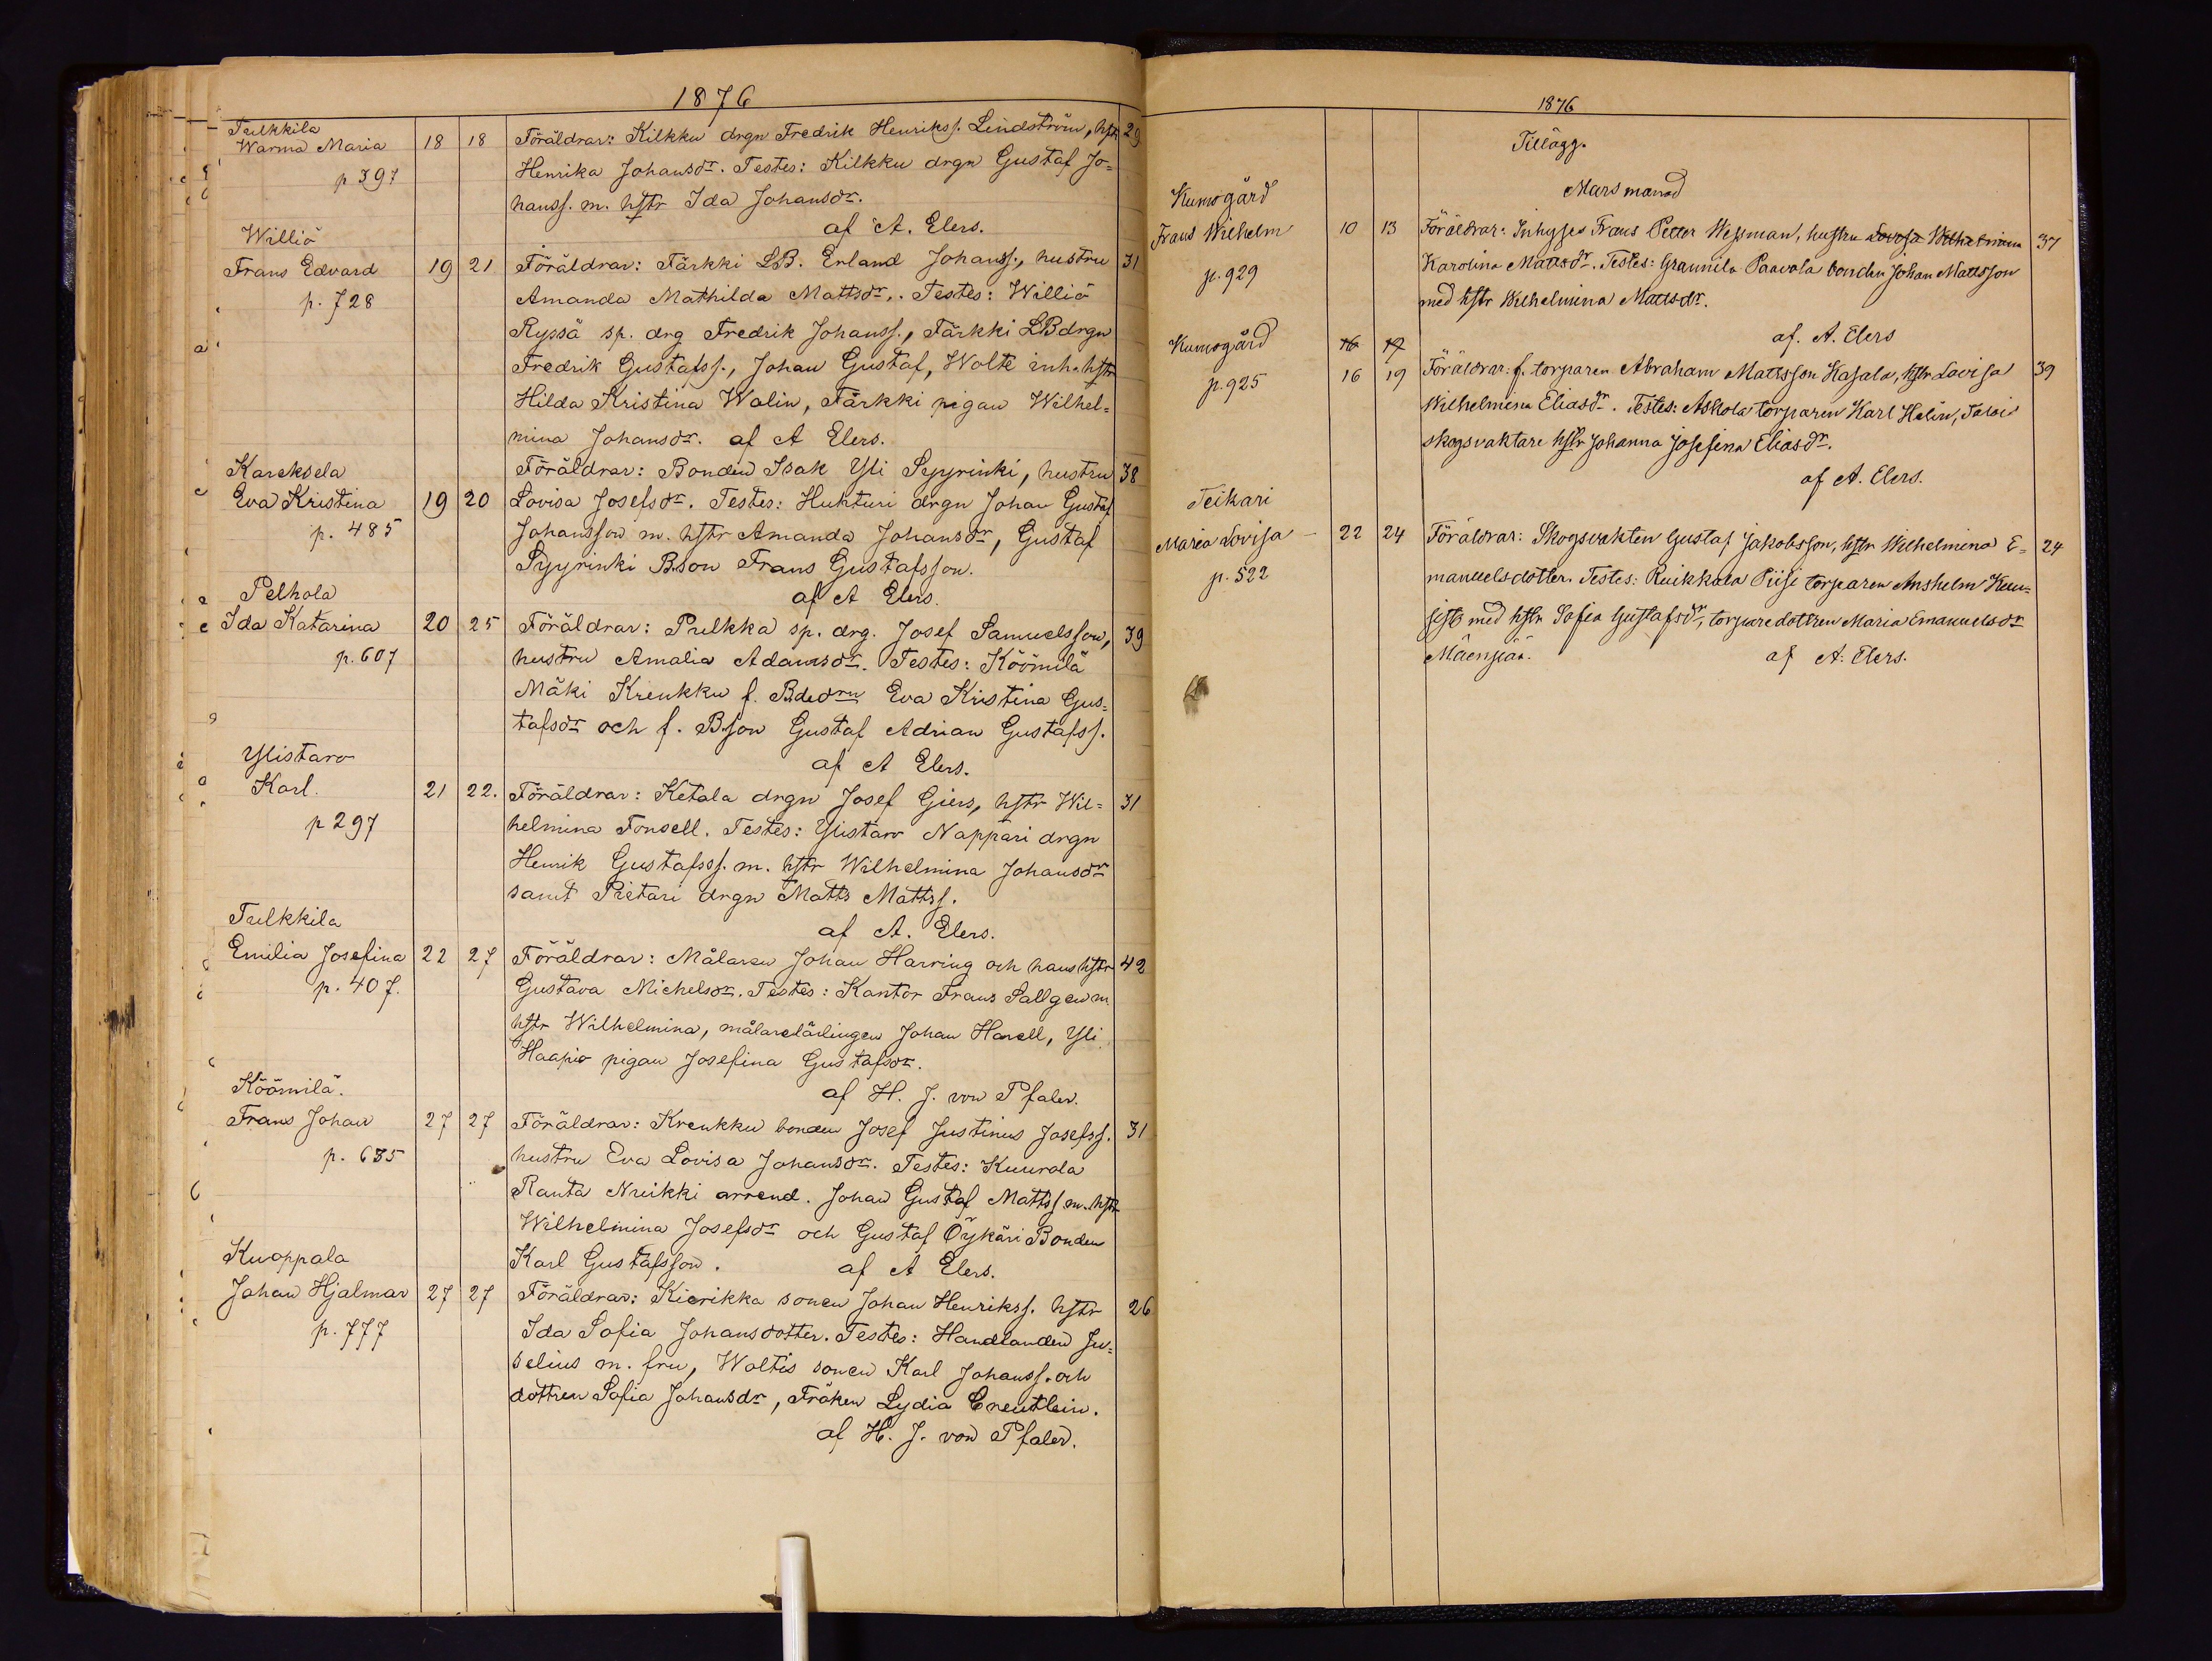 1876
Tulkkila
Warma Maria 18 18 Föräldrar: Kilkku drgn Fredrik Henrikss. Lindström, hstr 29
p 397 Henrika Johansdr. Testes: Kilkku drgn Gustaf Jo=
hanss. m. hstr Ida Johansdr.
Williö af A. Elers.
Frans Edvard 19 21 Föräldrar: Färkki LB. Erland Johanss., hustru 31
p. 728 Amanda Mathilda Mattsdr,. Testes: Williö
Ryssä sp. drg Fredrik Johanss., Färkki LBdrgn
Fredrik Gustafss., Johan Gustaf, Wolte inh. hstr
Hilda Kristina Walin, Färkki pigan Wilhel=
mina Johansdr. af A Elers.
Kareksela Föräldrar: Bonden Isak Yli Sÿyrinki, hustru 38
Eva Kristina 19 20 Lovisa Josefsdr. Testes: Huhturi drgn Johan Gustaf
p. 485 Johansson m. hstr Amanda Johansdr, Gustaf
Sÿyrinki Bson Frans Gustafsson.
Pelhola af A Elers.
Ida Katarina 20 25 Föräldrar: Pulkka sp. drg. Josef Samuelsson, 39
p. 607 hustru Amalia Adamsdr. Testes: Köömilä
Mäki Krenkku f. Bdedrn Eva Kristina Gus=
tafsdr och f. Bson Gustaf Adrian Gustafss.
Ylistaro af A Elers.
Karl. 21 22. Föräldrar: Ketala drgn Josef Giers, hstr Wil= 31
p 297 helmina Fonsell. Testes: Ylistaro Nappari drgn
Henrik Gustafss. m. hstr Wilhelmina Johansdr
samt Pietari drgn Matts Mattss.
Tulkkila af A. Elers.
Emilia Josefina 22 27 Föräldrar: Målaren Johan Harring och hans hstr 42
p. 407. Gustava Michelsdr. Testes: Kantor Frans Sallgen m.
hstr Wilhelmina, målarelärlingen Johan Harell, Yli
Haapio pigan Josefina Gustafsdr.
Köömilä. af H. J. von Pfaler.
Frans Johan 27 27 Föräldrar: Krenkku bonden Josef Justinus Josefss. 31
p. 635 hustru Eva Lovisa Johansdr. Testes: Kuurola
Ranta Nuikki arrend. Johan Gustaf Mattss m. hstr
Wilhelmina Josefsdr och Gustaf Öykäri Bonden
Kuoppala Karl Gustafsson. af A Elers.
Johan Hjalmar 27 27 Föräldrar: Kierikka sonen Johan Henrikss. hstr 26
p. 777 Ida Sofia Johansdotter. Testes: Handlanden Ju=
selius m. fru, Woltis sonen Karl Johanss. och
dottren Sofia Johansdr, Fröken Lydia Creutlein.
af H. J. von Pfaler.
1876
Tillägg.
Mars månad
Kumogård
Frans Wilhelm 10 13 Föräldrar: Inhyses Frans Petter Wessman, hustru Lovisa Wilhelmina 37
p. 929 Karolina Mattsdr. Testes: Grannila Paavola bonden Johan Mattsson
med hstr Wilhelmina Mattsdr.
Kumogård 16 17 af. A. Elers
p. 925 16 19 Föräldrar: f. torparen Abraham Mattsson Kasala, hstr Lovisa 39
Wilhelmina Eliasdr. Testes: Askola torparen Karl Helin,
skogsvaktare hstr Johanna Josefina Eliasdr.
af A. Elers.
Teikari
Maria Lovisa - 22 24 Föräldrar: Skogsvakten Gustaf Jakobsson, hstr Wilhelmina E= 24
p. 522 manuelsdotter. Testes: Ruikkala Piisi torparen Anshelm
med hstr Sofia Gustafsdr, torparedottren Maria Emanuelsdr
Mäenpää. af A. Elers.